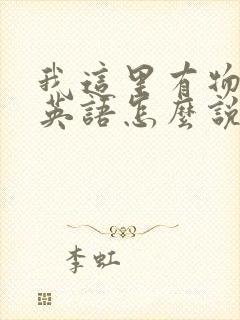 我這里有物
英語怎麼説
李虹